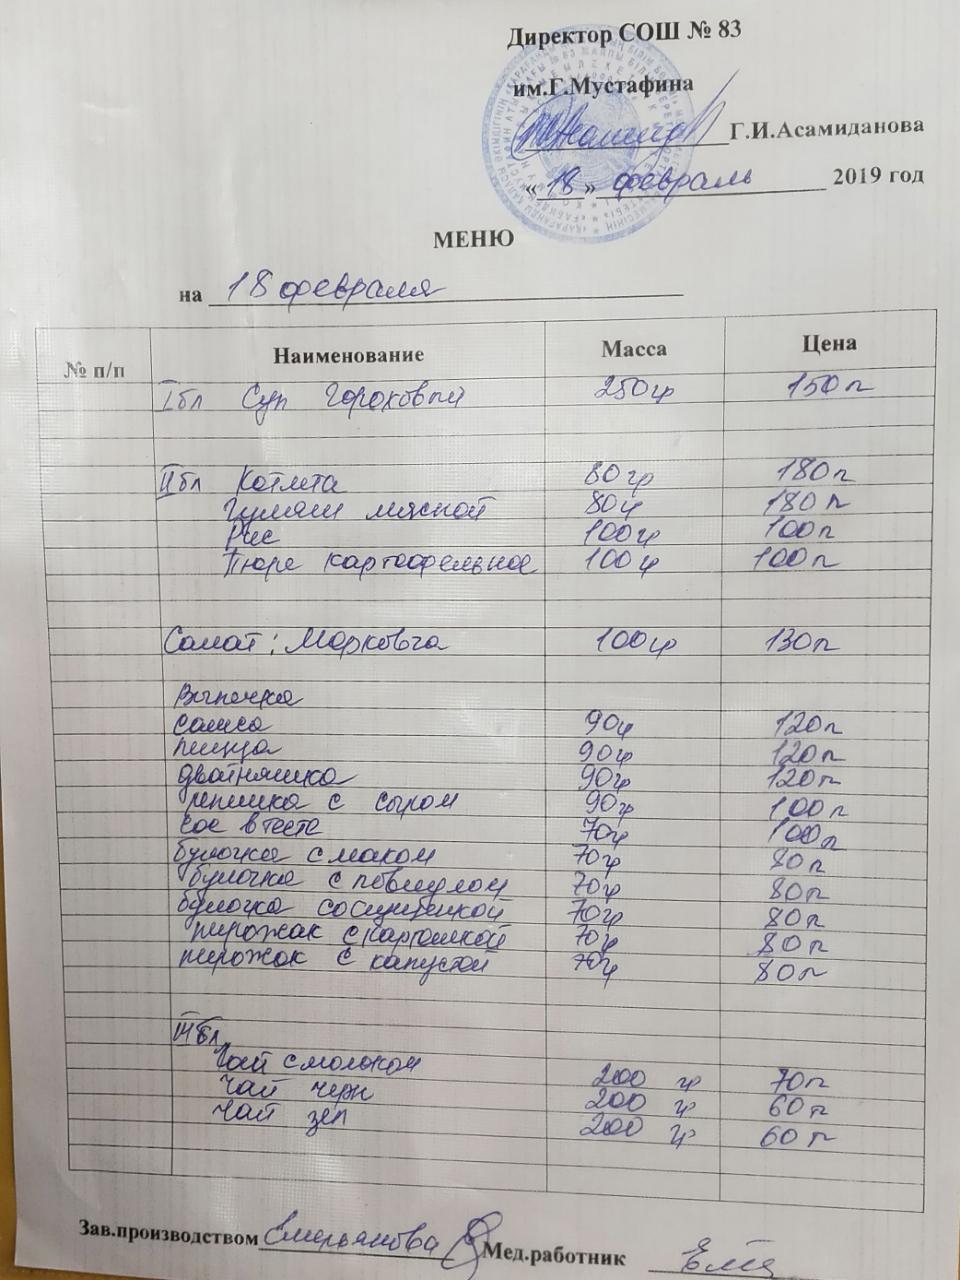 Директор СОШ № 83
им.Г.Мустафина
Г.И.Асамиданова
«18» февраль 2019 год
МЕНЮ
на 18 февраля
№ п/п Наименование Масса Цена
I бл Суп Гороховый 250гр 150т
II бл Котлета 80гр 180т
Гуляш мясной 80гр 180т
Рис 100гр 100т
Пюре картофельное 100гр 100т
Салат: Морковча 100гр 130т
Выпечка
самса 90гр 120т
пицца 90гр 120т
двойняшка 90гр 120т
лепешка с сыром 90гр 100т
сос в тесте 70гр 100т
булочка с маком 70гр 80т
булочка с повидлом 70гр 80т
булочка 70гр 80т
пирожок с картошкой 70гр 80т
пирожок с капустой 70гр 80т
III бл
Чай с молоком 200 гр 70т
Чай черн 200 гр 60т
Чай зел 200 гр 60т
Зав.производством Емельянова Мед.работник